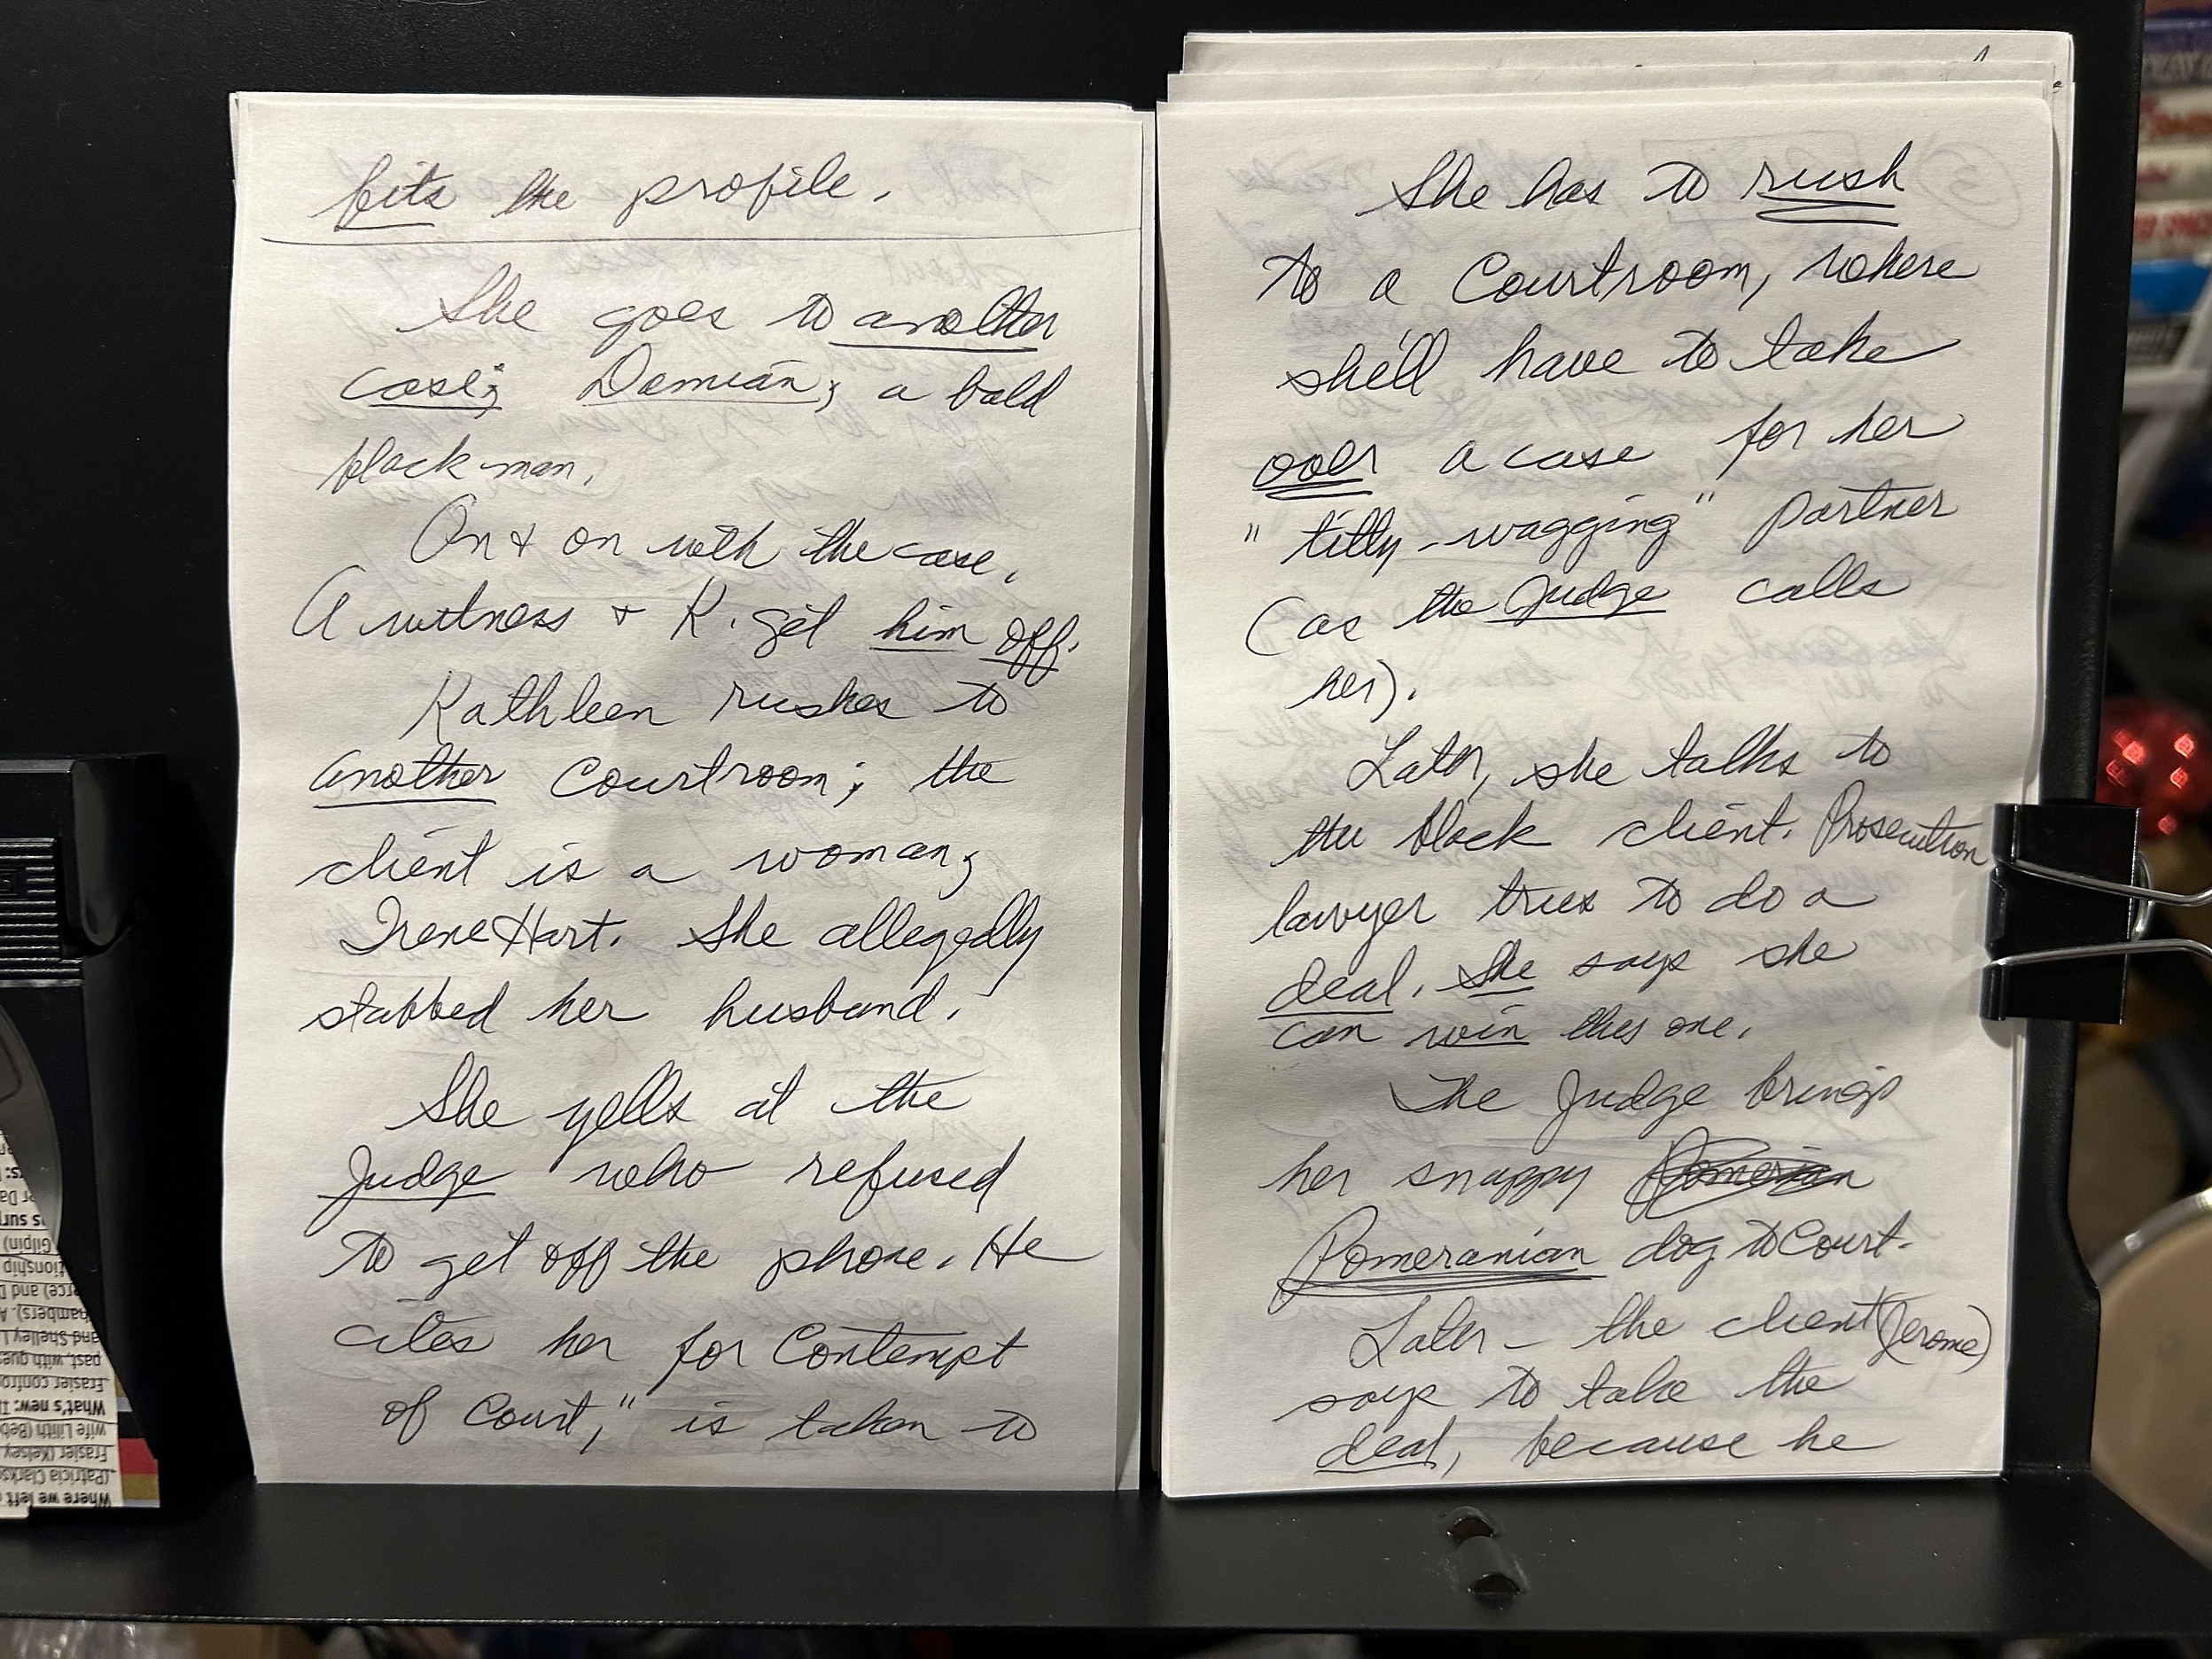 fits the profile.
She goes to another
case; Demian; a bald
black man.
On & on with the case.
A witness & K. get him off.
Kathleen rushes to
another Courtroom; the
client is a woman;
Irene Hart. She allegedly
stabbed her husband.
She yells at the
Judge who refused
to get off the phone. He
cites her for Contempt
of Court," is taken to
She has to rush
to a Courtroom, where
she'll have to take
over a case for her
"titty-wagging" partner
(as the Judge calls
her).
Later, she talks to
the black client. Prosecution
lawyer tries to do a
deal. She says she
can win this one.
The Judge brings
her snappy Pomerian
Pomeranian dog to Court.
Later – the client (Jerome)
says to take the
deal, because he
Where we left
(Patricia Clarks
Frasier (Kelsey
wife Lilith (Beb
What's new:
Frasier confro
past, with gues
and Shelley L
hambers). A
erce) and D
tionship
Gilpin)
is surp